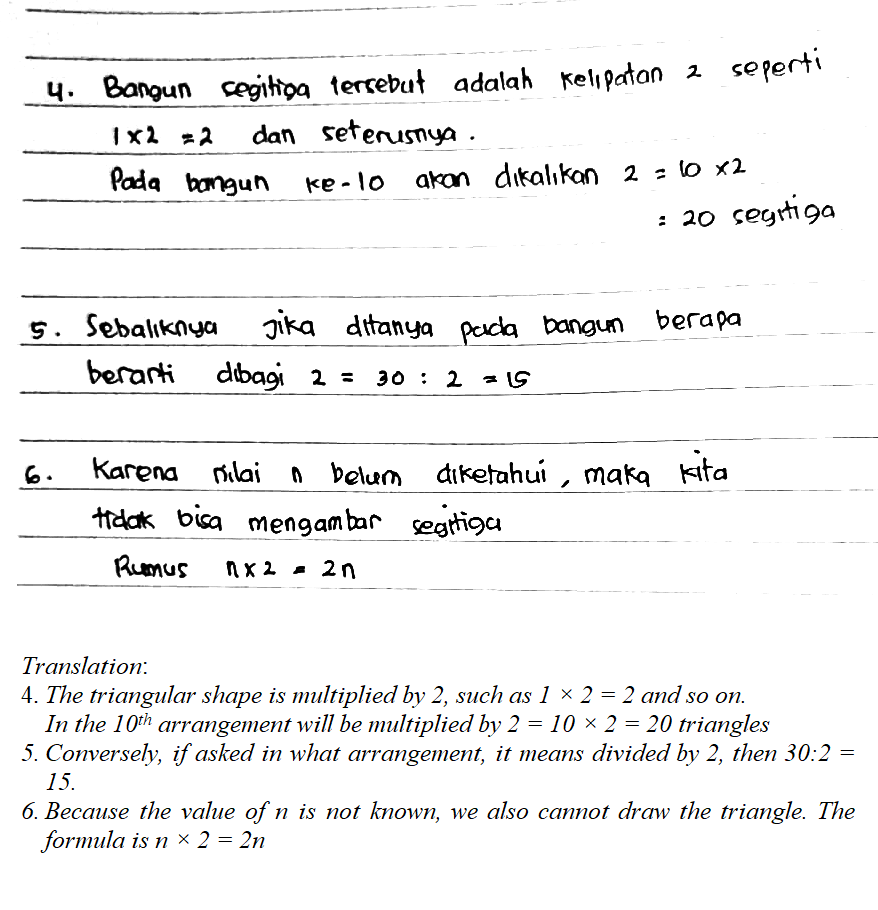 4. Bangun segitiga tersebut adalah kelipatan 2 seperti
1 x 2 = 2 dan seterusnya.
Pada bangun ke-10 akan dikalikan 2 = 10 x 2
= 20 segitiga
5. Sebaliknya jika ditanya pada bangun berapa
berarti dibagi 2 = 30 : 2 = 15
6. Karena nilai n belum diketahui, maka kita
tidak bisa mengambar segitiga
Rumus n x 2 = 2n
Translation:
4. The triangular shape is multiplied by 2, such as 1 × 2 = 2 and so on.
In the 10th arrangement will be multiplied by 2 = 10 × 2 = 20 triangles
5. Conversely, if asked in what arrangement, it means divided by 2, then 30:2 =
15.
6. Because the value of n is not known, we also cannot draw the triangle. The
formula is n × 2 = 2n